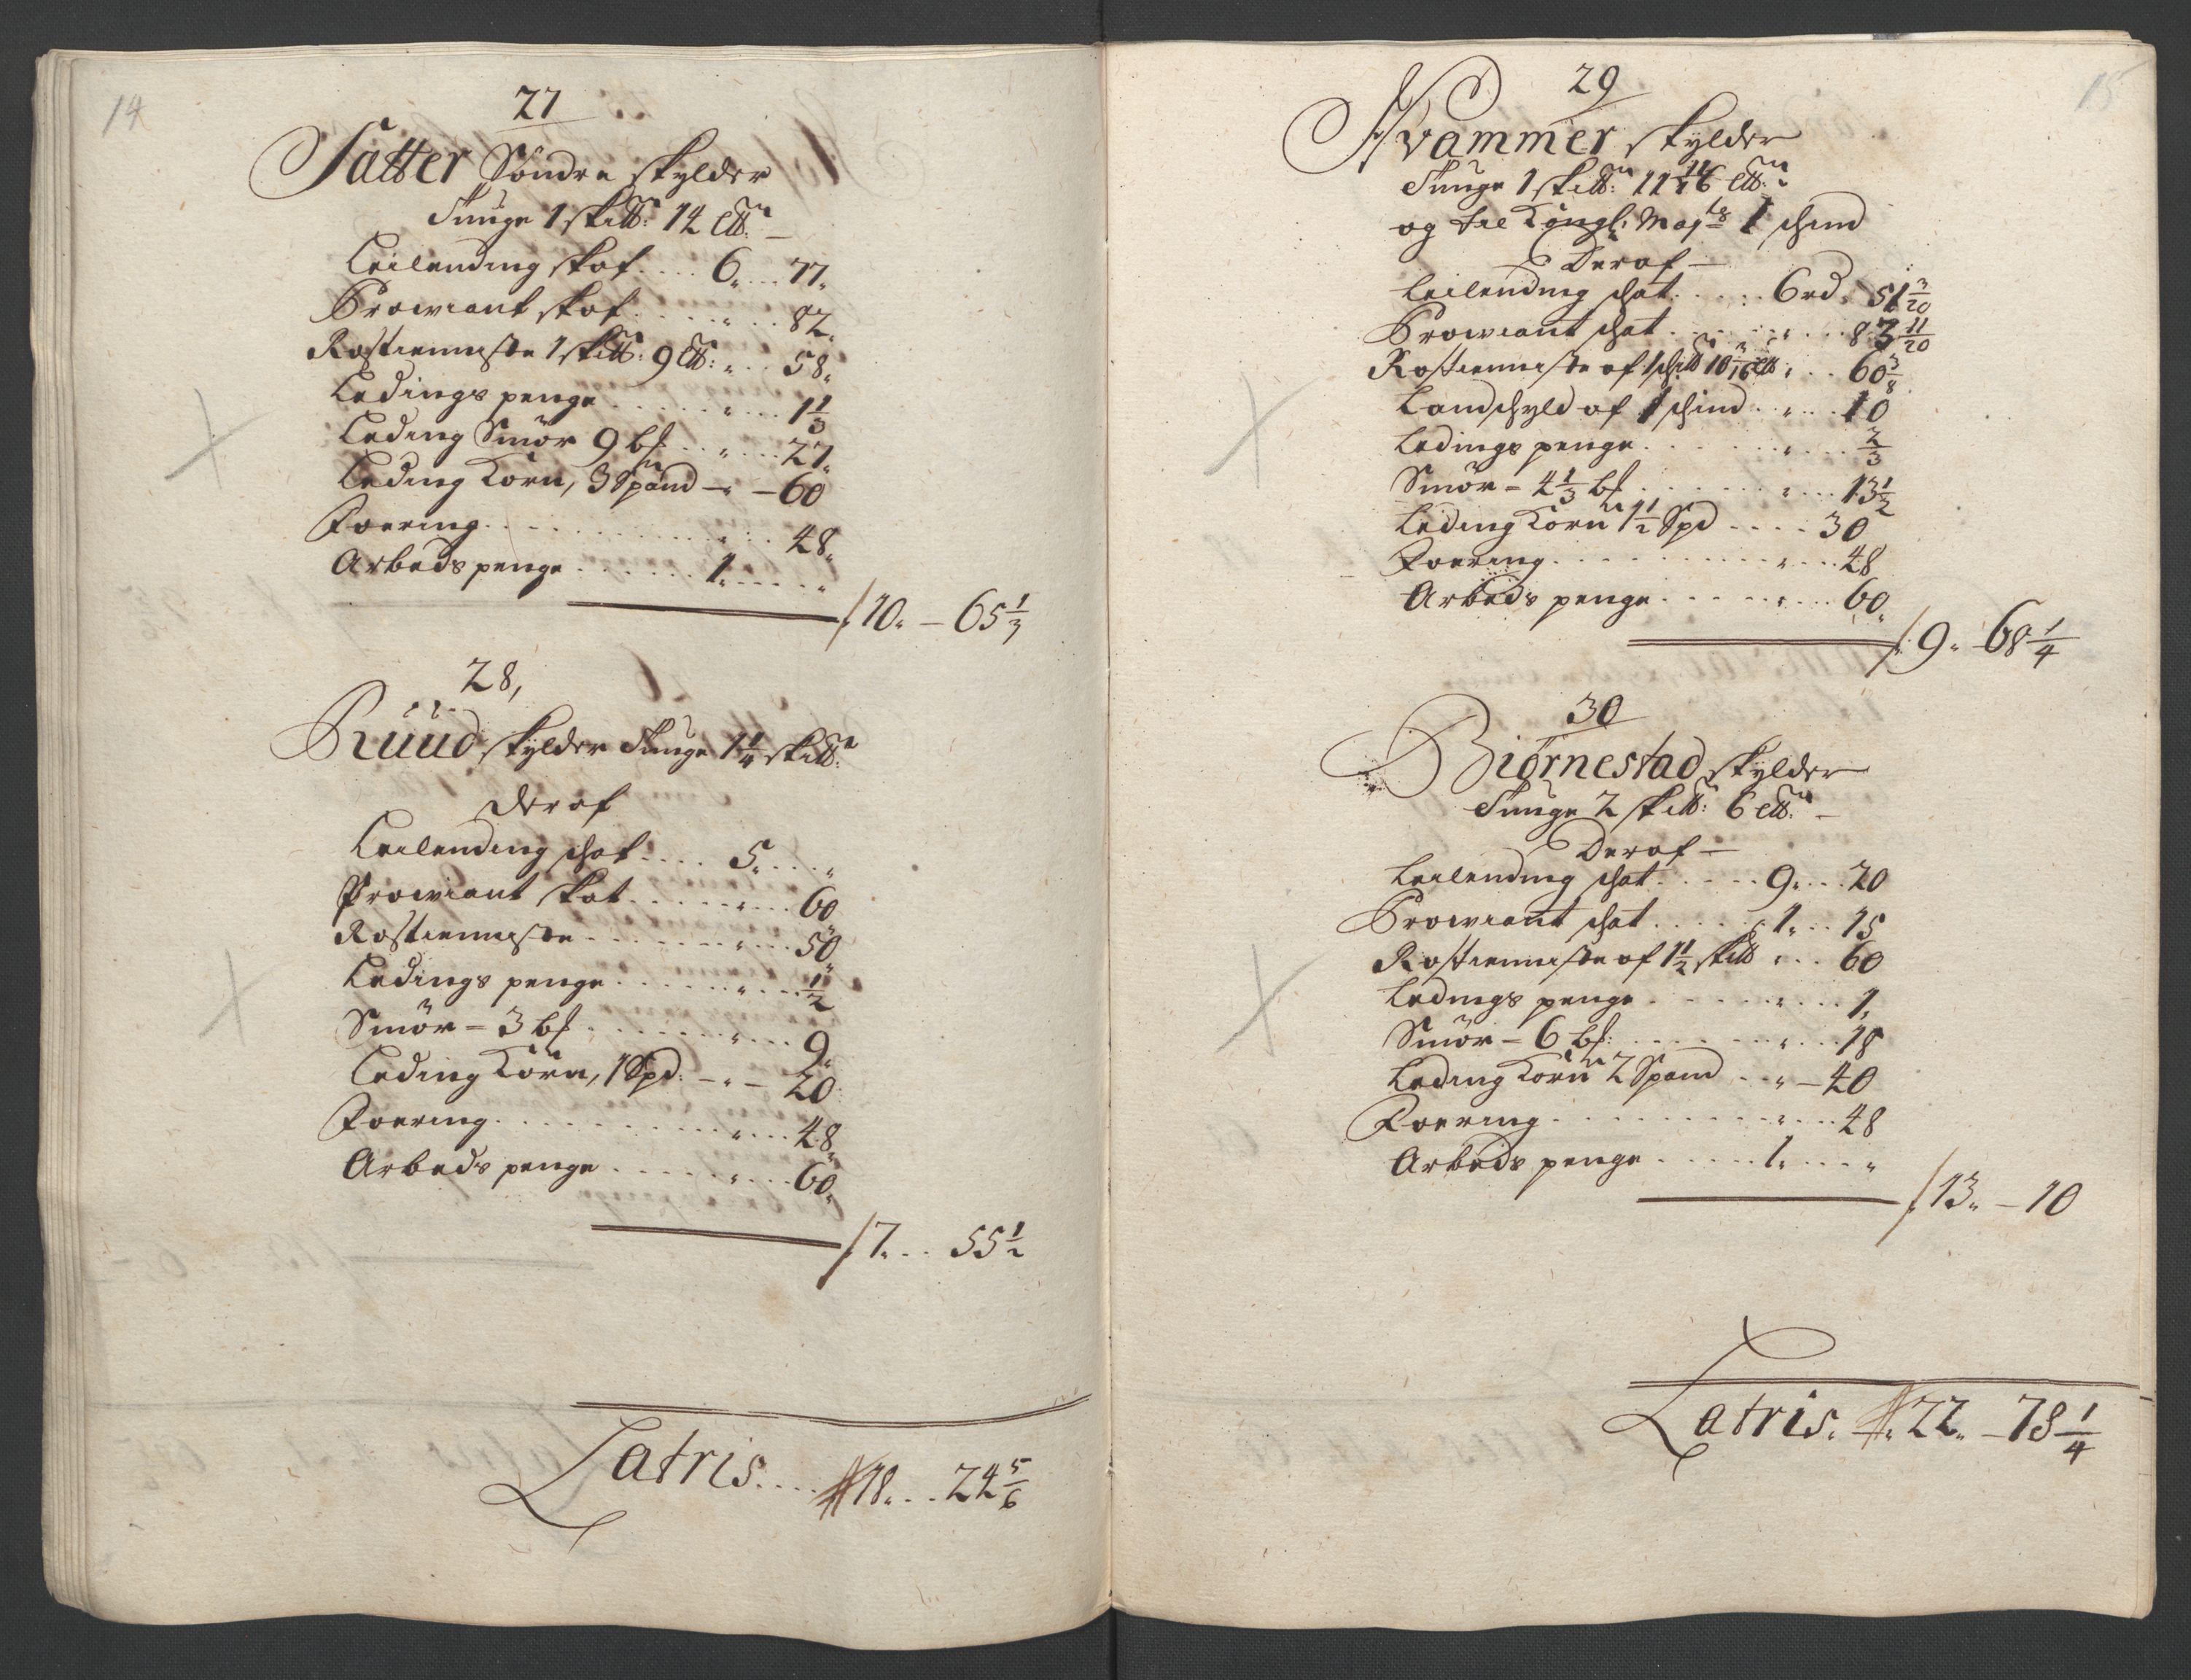 14
27
Sætter Söndre skylder
Tunge 1 skill: 14 ℔:
Leilending skat .... 6 .... 77
Prowiant skat .... " .. 82
Rostienniste 1 skill: 9 ℔: " .. 58
Ledings penge .... " ... 1 1/3
Leding Smör 9 b℔ .. " ... 27
Leding Korn, 3 Spand — " — 60
Foering .... " ... 48
Arbeds penge ...... 1 .... "
10 — 65 1/3
28,
Rüüd skylder Tunge 1 1/4 skill:
deraf
Leilending schat .... 5 .... "
Prowiant skat .... " ... 60
Rostienniste .... " ... 50
Ledings penge .... " ... 1/2
Smör = 3 b℔ .... " ... 9
Leding Korn, 1 Spd: — " — 20
Foering .... " ... 48
Arbeds penge .... " ... 60
7 ... 55 1/2
Latris .... 18 ... 24 5/6
15
29
Kvammer skylder
Tunge 1 skill: 11 11/16 ℔:
og til Kongl: Maj:ts 1 schind
Deraf —
Leilending schat .... 6 rd. 51 3/20
Prowiant schat .... " .. 83 11/20
Rostienniste af 1 schill 10 3/16 ℔ " .. 60 3/8
Landschyld af 1 schind .. " ... 10
Ledings penge .... " ... 2/3
Smör = 4 1/3 b℔ .... " ... 13 1/2
Leding Korn 1 1/2 Spd .... 30
Foering .... " ... 48
Arbeds penge .... " ... 60
9 — 68 1/4
30
Biörnestad skylder
Tunge 2 skill: 6 ℔:
Deraf —
Leilending schat .... 9 ... 20
Prowiant schat .... 1 ... 15
Rostienniste af 1 1/2 skill " ... 60
Ledings penge .... " ... 1
Smör = 6 b℔: .... " ... 18
Leding Korn 2 Spand .. " — 40
Foering .... " ... 48
Arbeds penge .... 1 .... "
13 — 10
Latris. 22 — 78 1/4